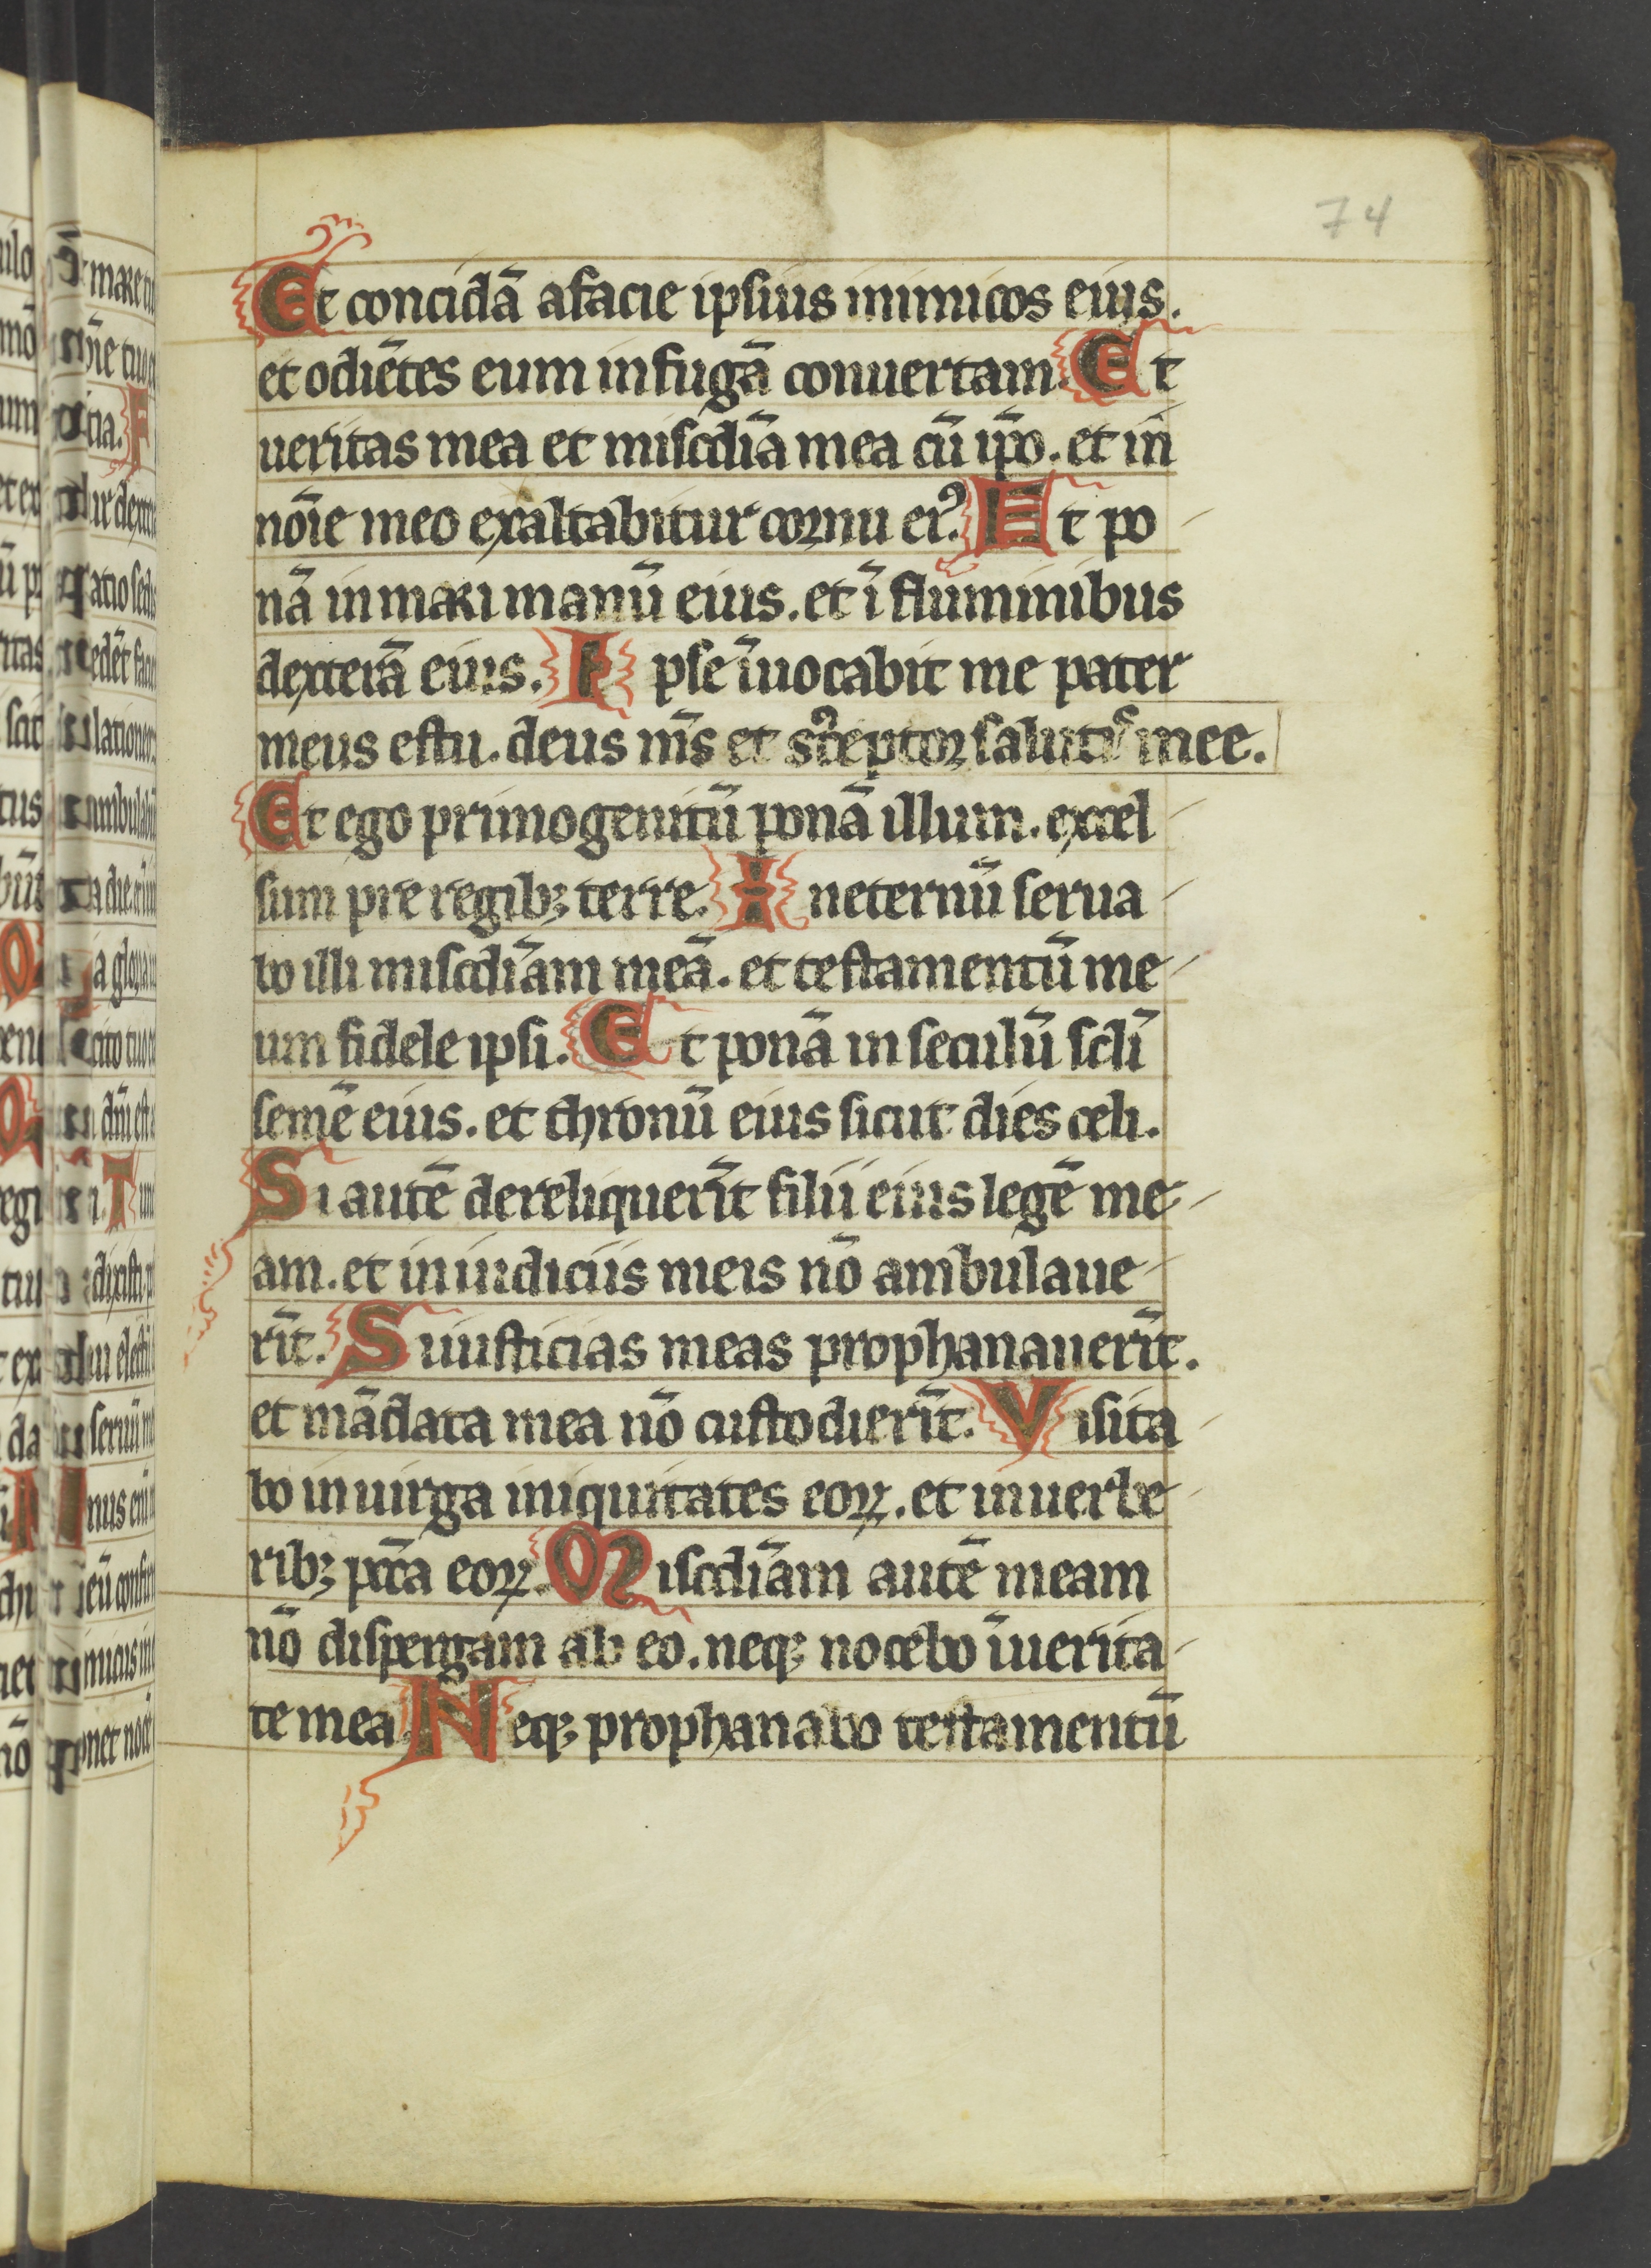 74
Et concidā a facie ipsius inimicos eius.
et odiētes eum in fugā conuertam. Et
ueritas mea et miscdiā mea cū ip̄o. et in
noīe meo exaltabitur cornu ei⁹. Et po
nā in mari manū eius. et ī fluminibus
dexterā eius. Ipse īuocabit me pater
meus es tu. deus m̄s et s⁹ceptor salutis mee.
Et ego primogenitū ponā illum. excel
sum pre regibꝫ terre. In eternū serua
bo illi miscdiām meā. et testamentū me
um fidele ipsi. Et ponā in seculū scl̄i
semē eius. et thronū eius sicut dies celi.
Si autē dereliquerīt filii eius legē me
am. et in iudiciis meis nō ambulaue
rīt. Si iusticias meas prophanauerīt.
et mādata mea nō custodierīt. Visita
bo in uirga iniquitates eoꝝ. et in uerbe
ribꝫ pccā eoꝝ. Miscdiām autē meam
nō dispergam ab eo. neqꝫ nocebo ī uerita
te mea Neqꝫ prophanabo testamentū